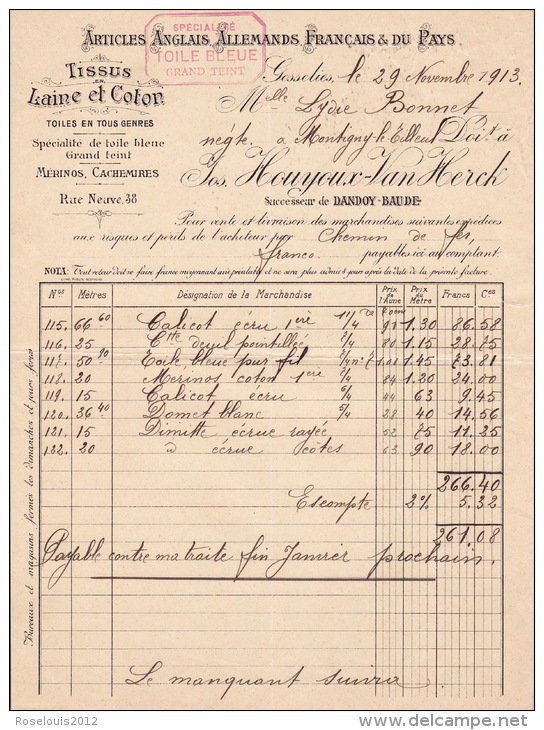 Articles Anglais, Allemands Français & du Pays.
SPÉCIALITÉ
TOILE BLEUE
GRAND TEINT
Tissus
EN
Laine et Coton
TOILES EN TOUS GENRES
Spécialité de toile bleue
Grand teint
MÉRINOS, CACHEMIRES
Rue Neuve, 38
Gosselies, le 29 Novembre 1913.
Melle Lydie Bonnet
négte. à Montigny-le-Tilleul Doit à
Jos. Houyoux-Van Herck
Successeur de DANDOY-BAUDE
Pour vente et livraison des marchandises suivantes expédiées
aux risques et périls de l'acheteur par Chemin de fer,
franco. payables ici au comptant.
NOTA: Tout retour doit se faire franco moyennant avis préalable et ne sera plus admis jours après la date de la présente facture
Nos Mètres Désignation de la Marchandise Prix de l'Aune Prix du Mètre Francs Ces
115. 66 60 Calicot écru 1ère 11/4 91 1.30 86.58
116. 25 Ctte deuil pointillée 5/4 80 1.15 28.75
117. 50 90 Toile bleue pur fil 7/4 n° 7 1.01 1.45 73.81
118. 20 Mérinos coton 1ère 7/4 84 1.20 24.00
119. 15 Calicot écru 5/4 44 63 9.45
120. 36 40 Domet blanc 5/4 28 40 14.56
121. 15 Dimitte écrue rayée 52 75 11.25
122. 20 D écrue côtes 63 90 18.00
266.40
Escompte 2% 5.32
261.08
Payable contre ma traite fin Janvier prochain.
Le manquant suivra
Bureaux et magasins fermés les dimanches et jours fériés
Roselouis2012
delcampe.net